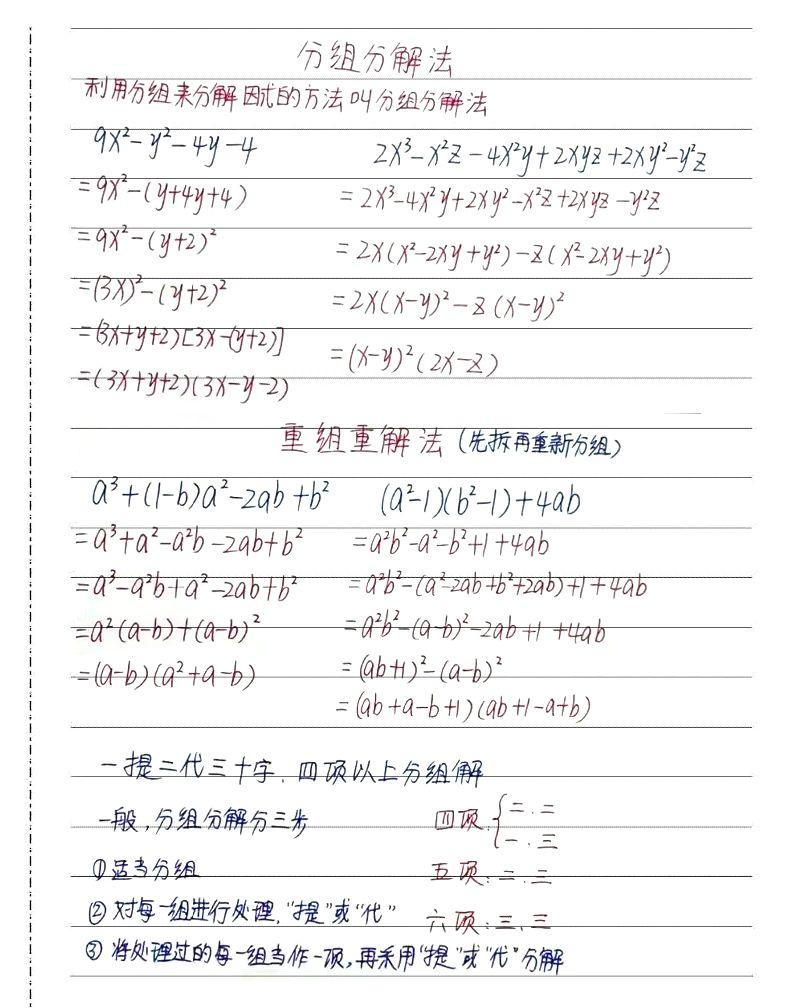 分组分解法
利用分组来分解因式的方法叫分组分解法
9x²-y²-4y-4
=9x²-(y+4y+4)
=9x²-(y+2)²
=(3x)²-(y+2)²
=(3x+y+2)[3x-(y+2)]
=(3x+y+2)(3x-y-2)
2x³-x²z-4x²y+2xyz+2xy²-y²z
=2x³-4x²y+2xy²-x²z+2xyz-y²z
=2x(x²-2xy+y²)-z(x²-2xy+y²)
=2x(x-y)²-z(x-y)²
=(x-y)²(2x-z)
重组重解法(先拆再重新分组)
a³+(1-b)a²-2ab+b²
=a³+a²-a²b-2ab+b²
=a³-a²b+a²-2ab+b²
=a²(a-b)+(a-b)²
=(a-b)(a²+a-b)
(a²-1)(b²-1)+4ab
=a²b²-a²-b²+1+4ab
=a²b²-(a²-2ab+b²+2ab)+1+4ab
=a²b²-(a-b)²-2ab+1+4ab
=(ab+1)²-(a-b)²
=(ab+a-b+1)(ab+1-a+b)
一提二代三十字.四项以上分组解
一般,分组分解分三步
①适当分组
②对每一组进行处理,"提"或"代"
③将处理过的每一组当作一项,再采用"提"或"代"分解
四项:{二.二
一.三
五项:二.三
六项:三.三